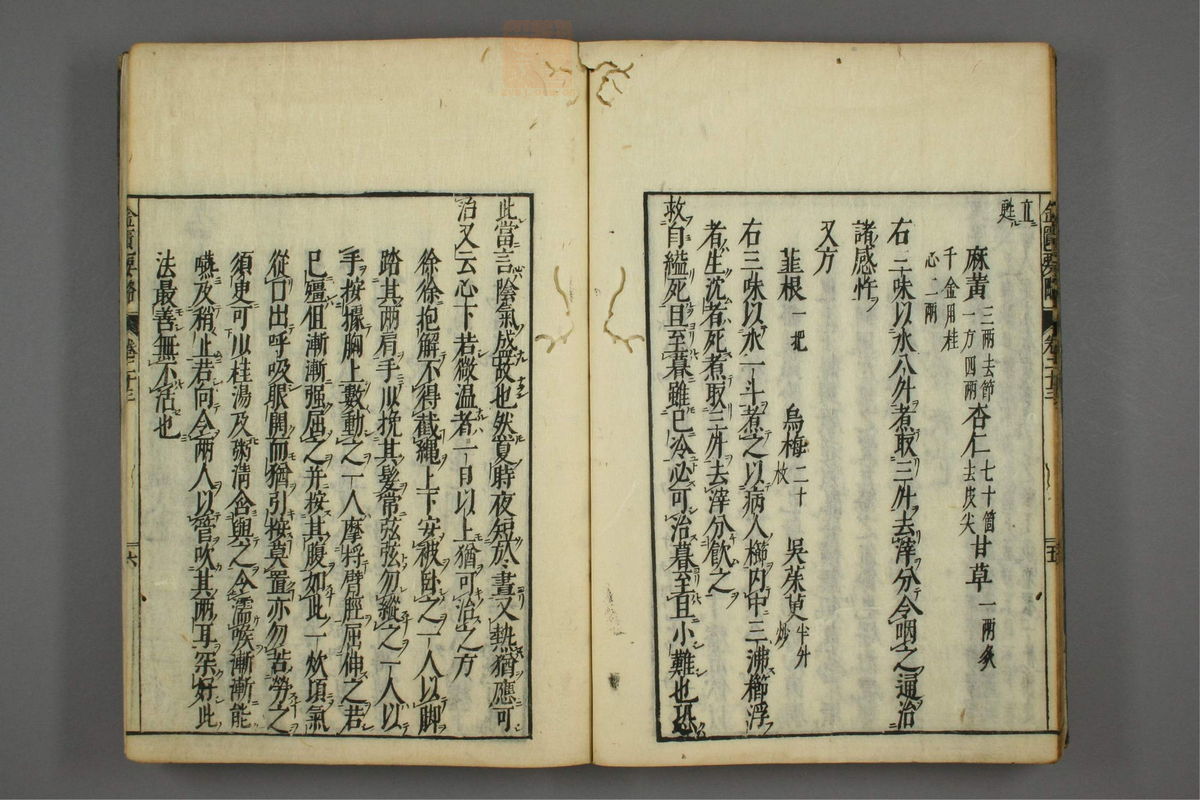 立甦
麻黄三兩去節一方四兩 杏仁七十箇去皮尖 甘草一兩炙
千金用桂心二兩
右三味以水八升煮取三升去滓分令咽之通治
諸感忤
又方
韮根一把 烏梅二十枚 吳茱萸半升炒
右三味以水一斗煮之以病人櫛内中三沸櫛浮
者生沈者死煮取三升去滓分飲之
救自縊死旦至暮雖已冷必可治暮至旦小難也恐
此當言陰氣盛故也然夏時夜短於晝又熱猶應可
治又云心下若微温者一日以上猶可治之方
徐徐抱解不得截繩上下安被臥之一人以脚
踏其兩肩手以挽其髮常弦弦勿縱之一人以
手按據胸上數動之一人摩捋臂脛屈伸之若
已殭但漸漸强屈之并按其腹如此一炊頃氣
從口出呼吸眼開而猶引按莫置亦勿苦勞之
須臾可以桂湯及粥清含與之令濡喉漸漸能
嚥及稍止若向令兩人以管吹其兩耳罙好此
法最善無不活也
金匱要略
卷二十三
六